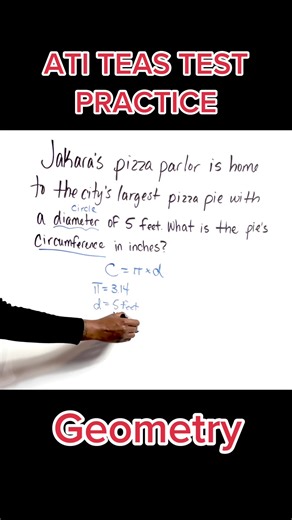 ATI TEAS TEST
PRACTICE
Jakara's pizza parlor is home
to the city's largest pizza pie with
Circle
a diameter of 5 feet. What is the pie's
Circumference in inches?
C = π × d
π = 3.14
d = 5 feet
Geometry